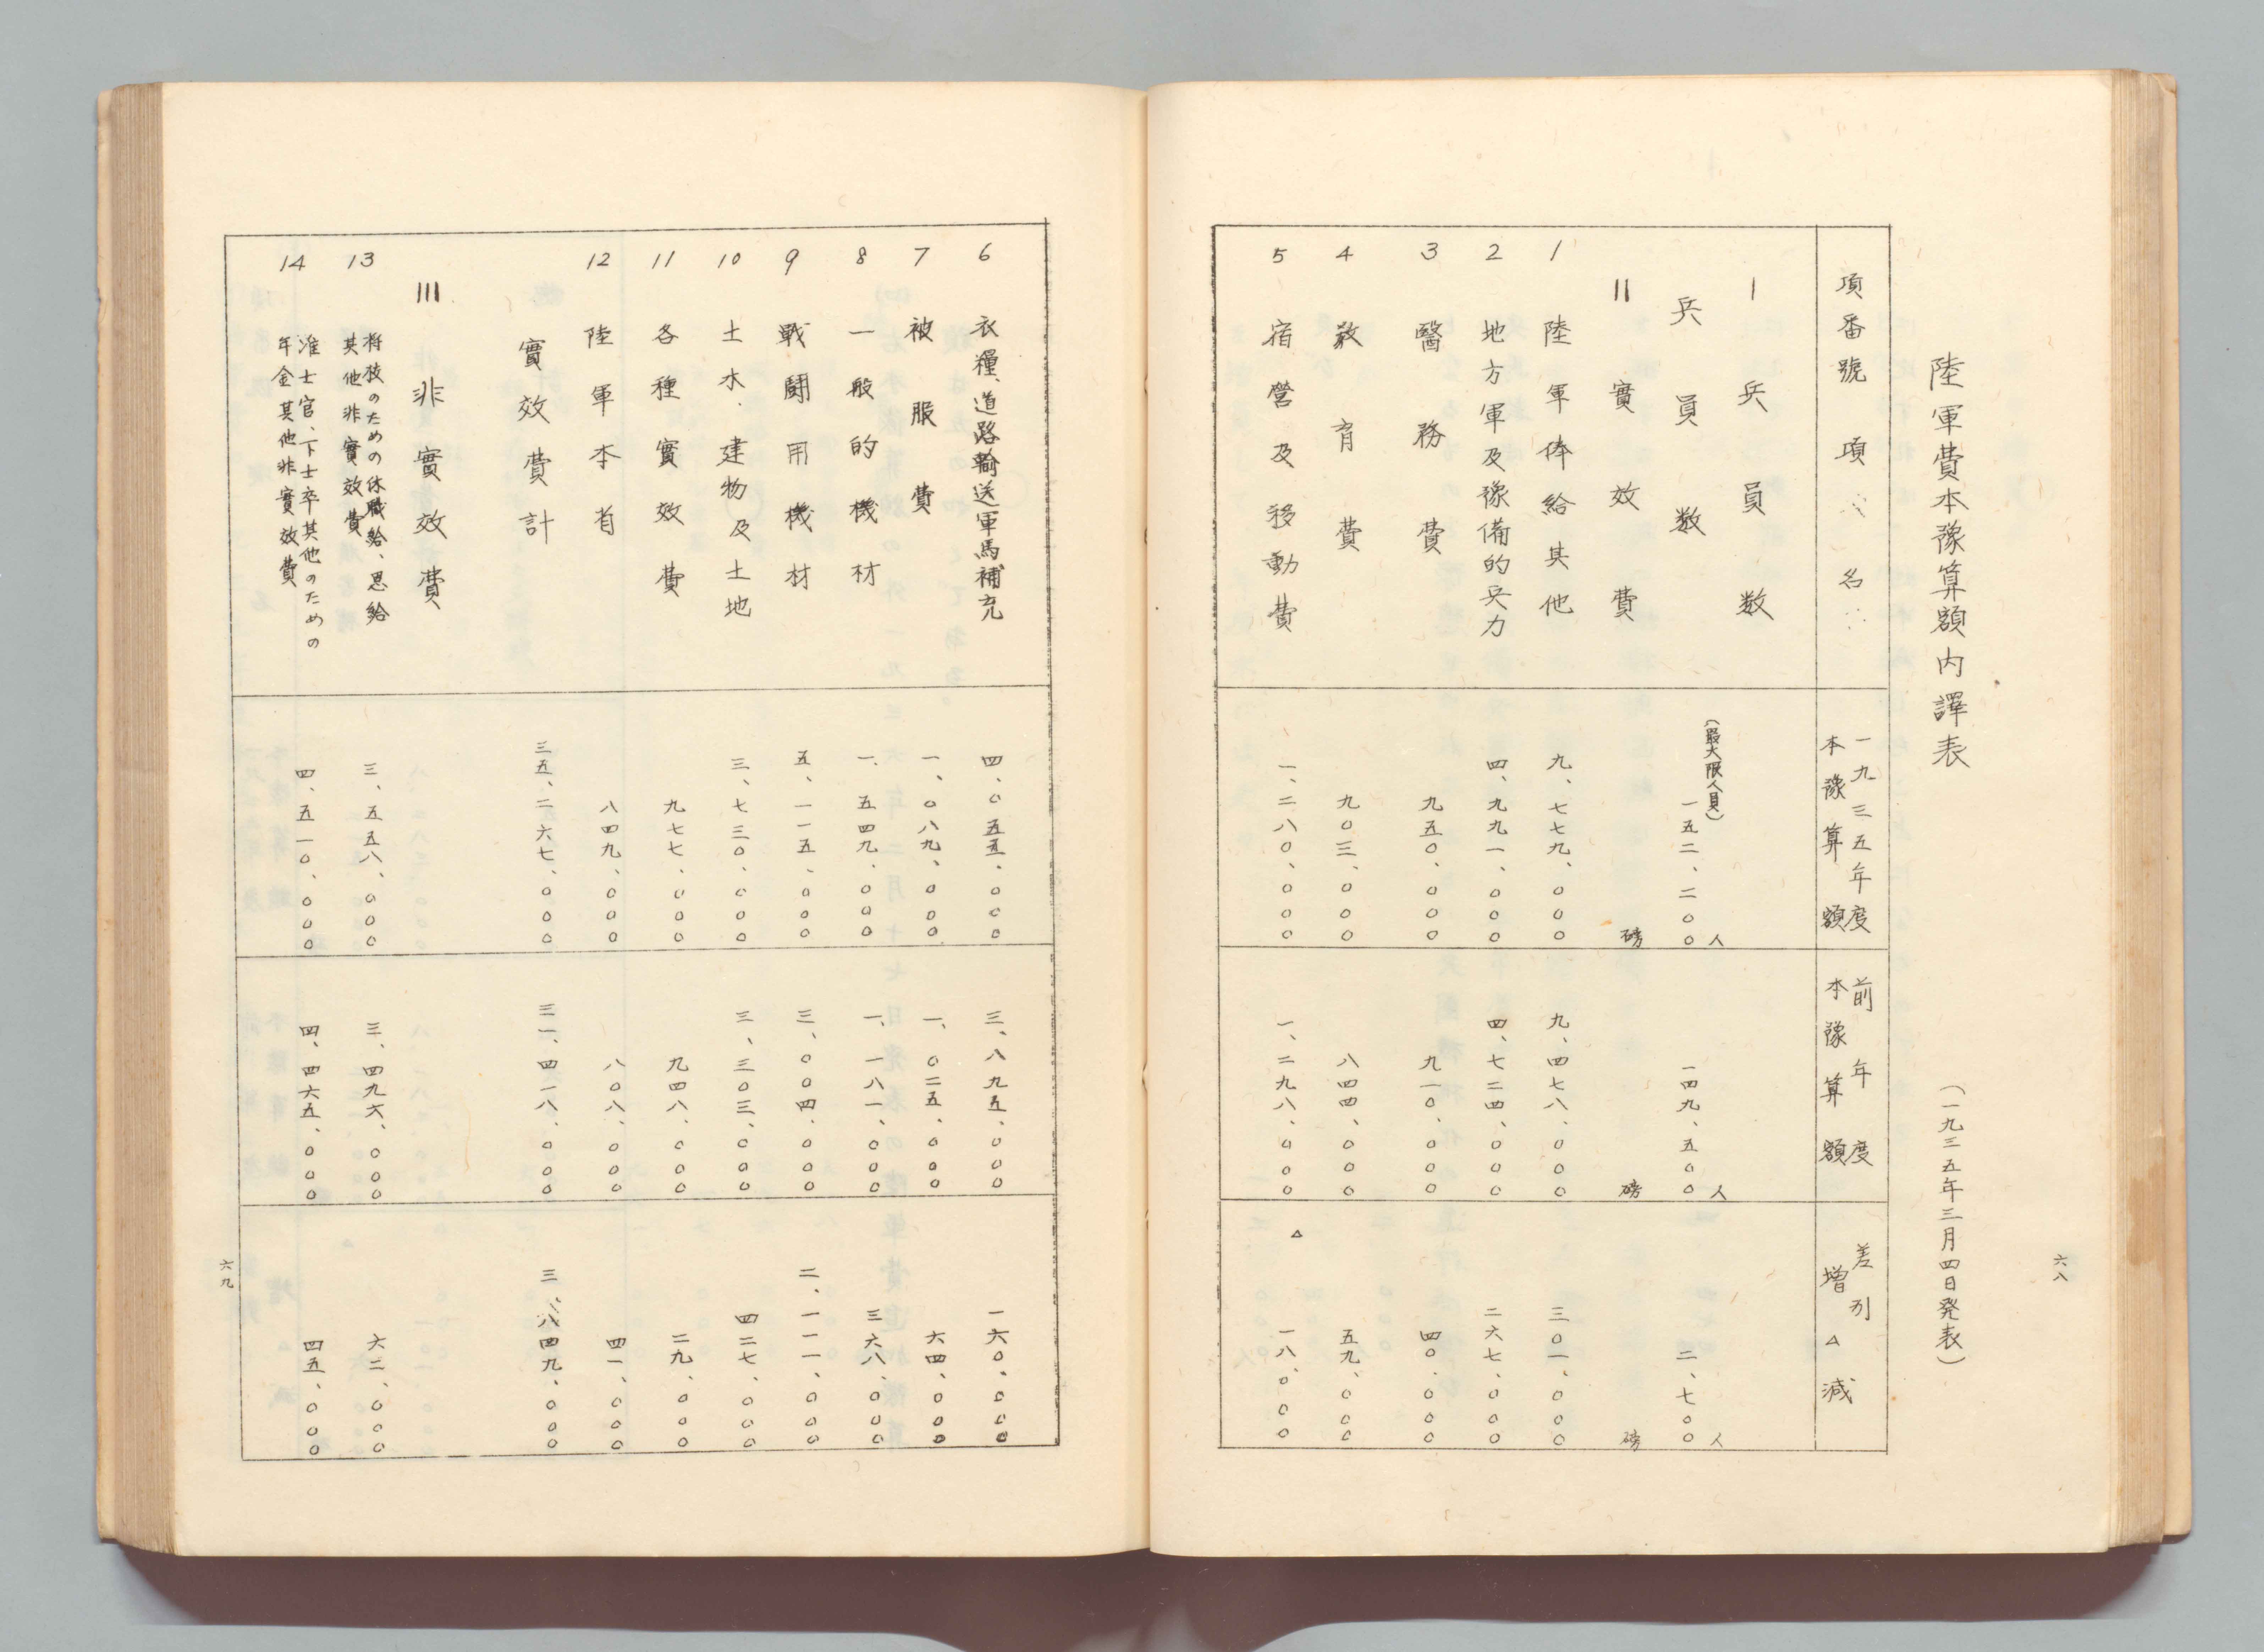 六八
陸軍費本豫算額内譯表
(一九三五年三月四日発表)
項番號
項名
一九三五年度
本豫算額
前年度
本豫算額
差別
増 △ 減
I 兵員数
兵員数
(最大限人員)
一五二、二〇〇人
一四九、五〇〇人
二、七〇〇人
II 實效費
磅
磅
磅
1 陸軍俸給其他
九、七七九、〇〇〇
九、四七八、〇〇〇
三〇一、〇〇〇
2 地方軍及豫備的兵力
四、九九一、〇〇〇
四、七二四、〇〇〇
二六七、〇〇〇
3 醫務費
九五〇、〇〇〇
九一〇、〇〇〇
四〇、〇〇〇
4 教育費
九〇三、〇〇〇
八四四、〇〇〇
五九、〇〇〇
5 宿營及移動費
一、二八〇、〇〇〇
一、二九八、〇〇〇
△ 一八、〇〇〇
6 衣糧、道路輸送軍馬補充
四、〇五五、〇〇〇
三、八九五、〇〇〇
一六〇、〇〇〇
7 被服費
一、〇八九、〇〇〇
一、〇二五、〇〇〇
六四、〇〇〇
8 一般的機材
一、五四九、〇〇〇
一、一八一、〇〇〇
三六八、〇〇〇
9 戰闘用機材
五、一一五、〇〇〇
三、〇〇四、〇〇〇
二、一一一、〇〇〇
10 土木、建物及土地
三、七三〇、〇〇〇
三、三〇三、〇〇〇
四二七、〇〇〇
11 各種實效費
九七七、〇〇〇
九四八、〇〇〇
二九、〇〇〇
12 陸軍本省
八四九、〇〇〇
八〇八、〇〇〇
四一、〇〇〇
實效費計
三五、二六七、〇〇〇
三一、四一八、〇〇〇
三、八四九、〇〇〇
III 非實效費
13 将校のための休職給、恩給
其他非實效費
三、五五八、〇〇〇
三、四九六、〇〇〇
六二、〇〇〇
14 准士官、下士卒其他のための
年金其他非實效費
四、五一〇、〇〇〇
四、四六五、〇〇〇
四五、〇〇〇
六九